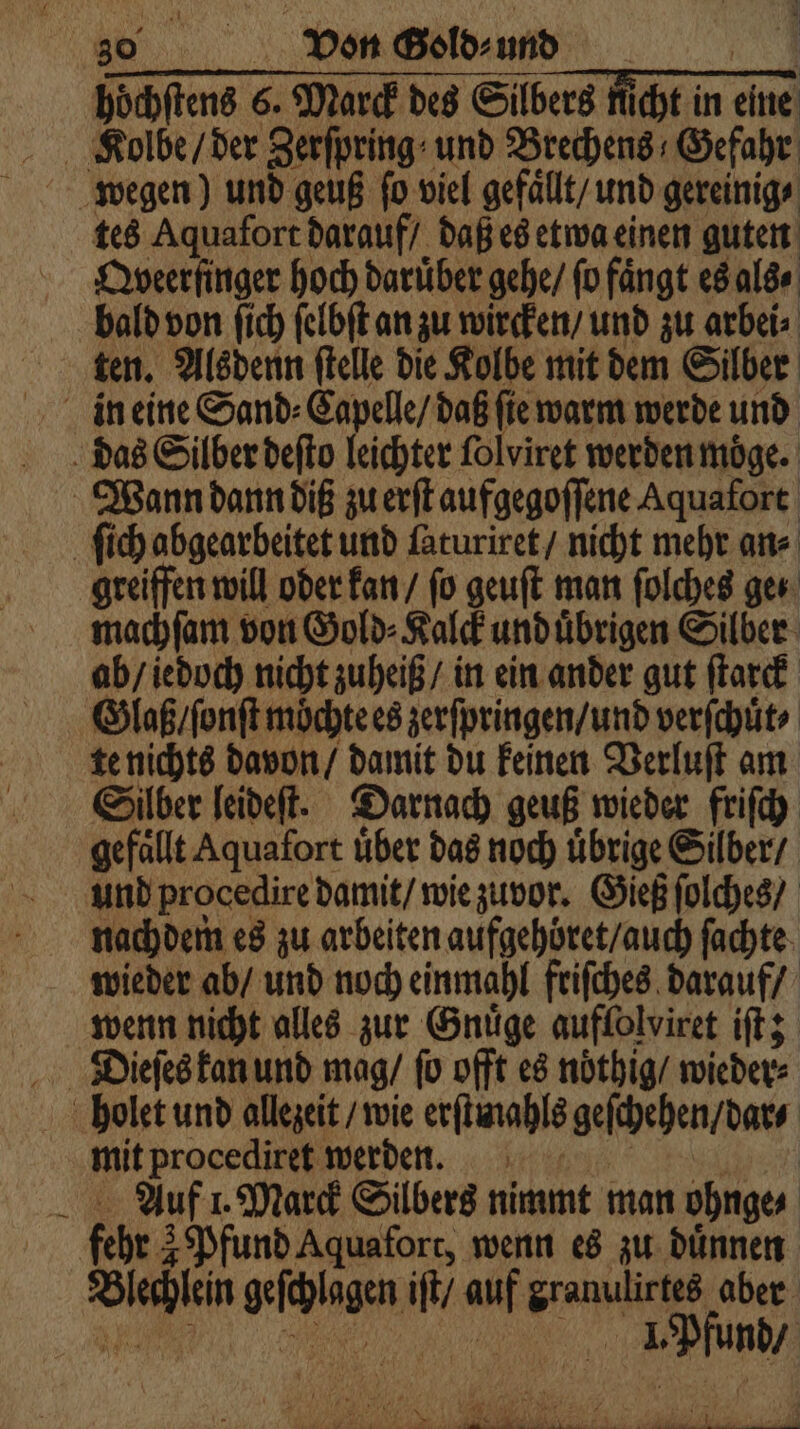 30 Von Gold⸗und
hoͤchſtens 6. Marck des Silbers nicht in eine
Kolbe/der Zerſpring⸗ und Brechens⸗Gefahr
wegen) und geuß ſo viel gefaͤllt/und gereinig⸗
tes Aquafort darauf/ daß es etwa einen guten
Qveerfinger hoch daruͤber gehe/ ſo faͤngt es als⸗
bald von ſich ſelbſt an zu wircken/ und zu arbei⸗
ten. Alsdenn ſtelle die Kolbe mit dem Silber
in eine Sand⸗Capelle/ daß ſie warm werde und
das Silber deſto leichter ſolviret werden moͤge.
Wann dann diß zu erſt aufgegoſſene Aquafort
ſich abgearbeitet und ſaturiret/ nicht mehr an⸗
greiffen will oder kan/ ſo geuſt man ſolches ge⸗
machſam von Gold⸗Kalck und uͤbrigen Silber
ab/ iedoch nicht zuheiß/ in ein ander gut ſtarck
Glaß/ſonſt moͤchte es zerſpringen/und verſchuͤt⸗
te nichts davon/ damit du keinen Verluſt am
Silber leideſt. Darnach geuß wieder friſch
gefaͤllt Aquafort uͤber das noch uͤbrige Silber/
und procedire damit/ wie zuvor. Gieß ſolches/
nachdem es zu arbeiten aufgehoͤret/auch ſachte
wieder ab/ und noch einmahl friſches darauf/
wenn nicht alles zur Gnuͤge aufſolviret iſt;
Dieſes kan und mag/ ſo offt es noͤthig/ wieder⸗
holet und allezeit/wie erſtmahls geſchehen/dar⸗
mit procediret werden.
Auf 1. Marck Silbers nimmt man ohnge⸗
fehr ¾ Pfund Aquafort, wenn es zu duͤnnen
Blechlein geſchlagen iſt/ auf granulirtes aber
1. Pfund/